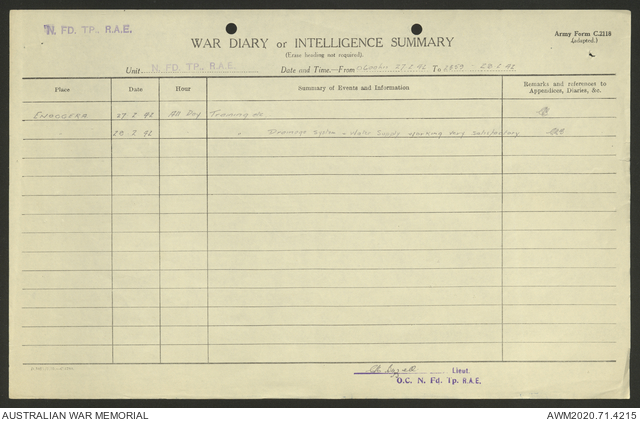 N. FD. TP. R.A.E.
Army Form C.2118
(adapted.)
WAR DIARY or INTELLIGENCE SUMMARY
(Erase heading not required).
Unit N. FD. TP. R.A.E. Date and Time.—From 27.2.42 To 2359 28.2.42
Place Date Hour Summary of Events and Information Remarks and references to Appendices, Diaries, &c.
ENOGGERA 27.2.42 All Day Training
28.2.42 " Drainage System Water Supply working very satisfactory
Lieut.
O.C. N. Fd. Tp. R.A.E.
AUSTRALIAN WAR MEMORIAL
AWM2020.71.4215